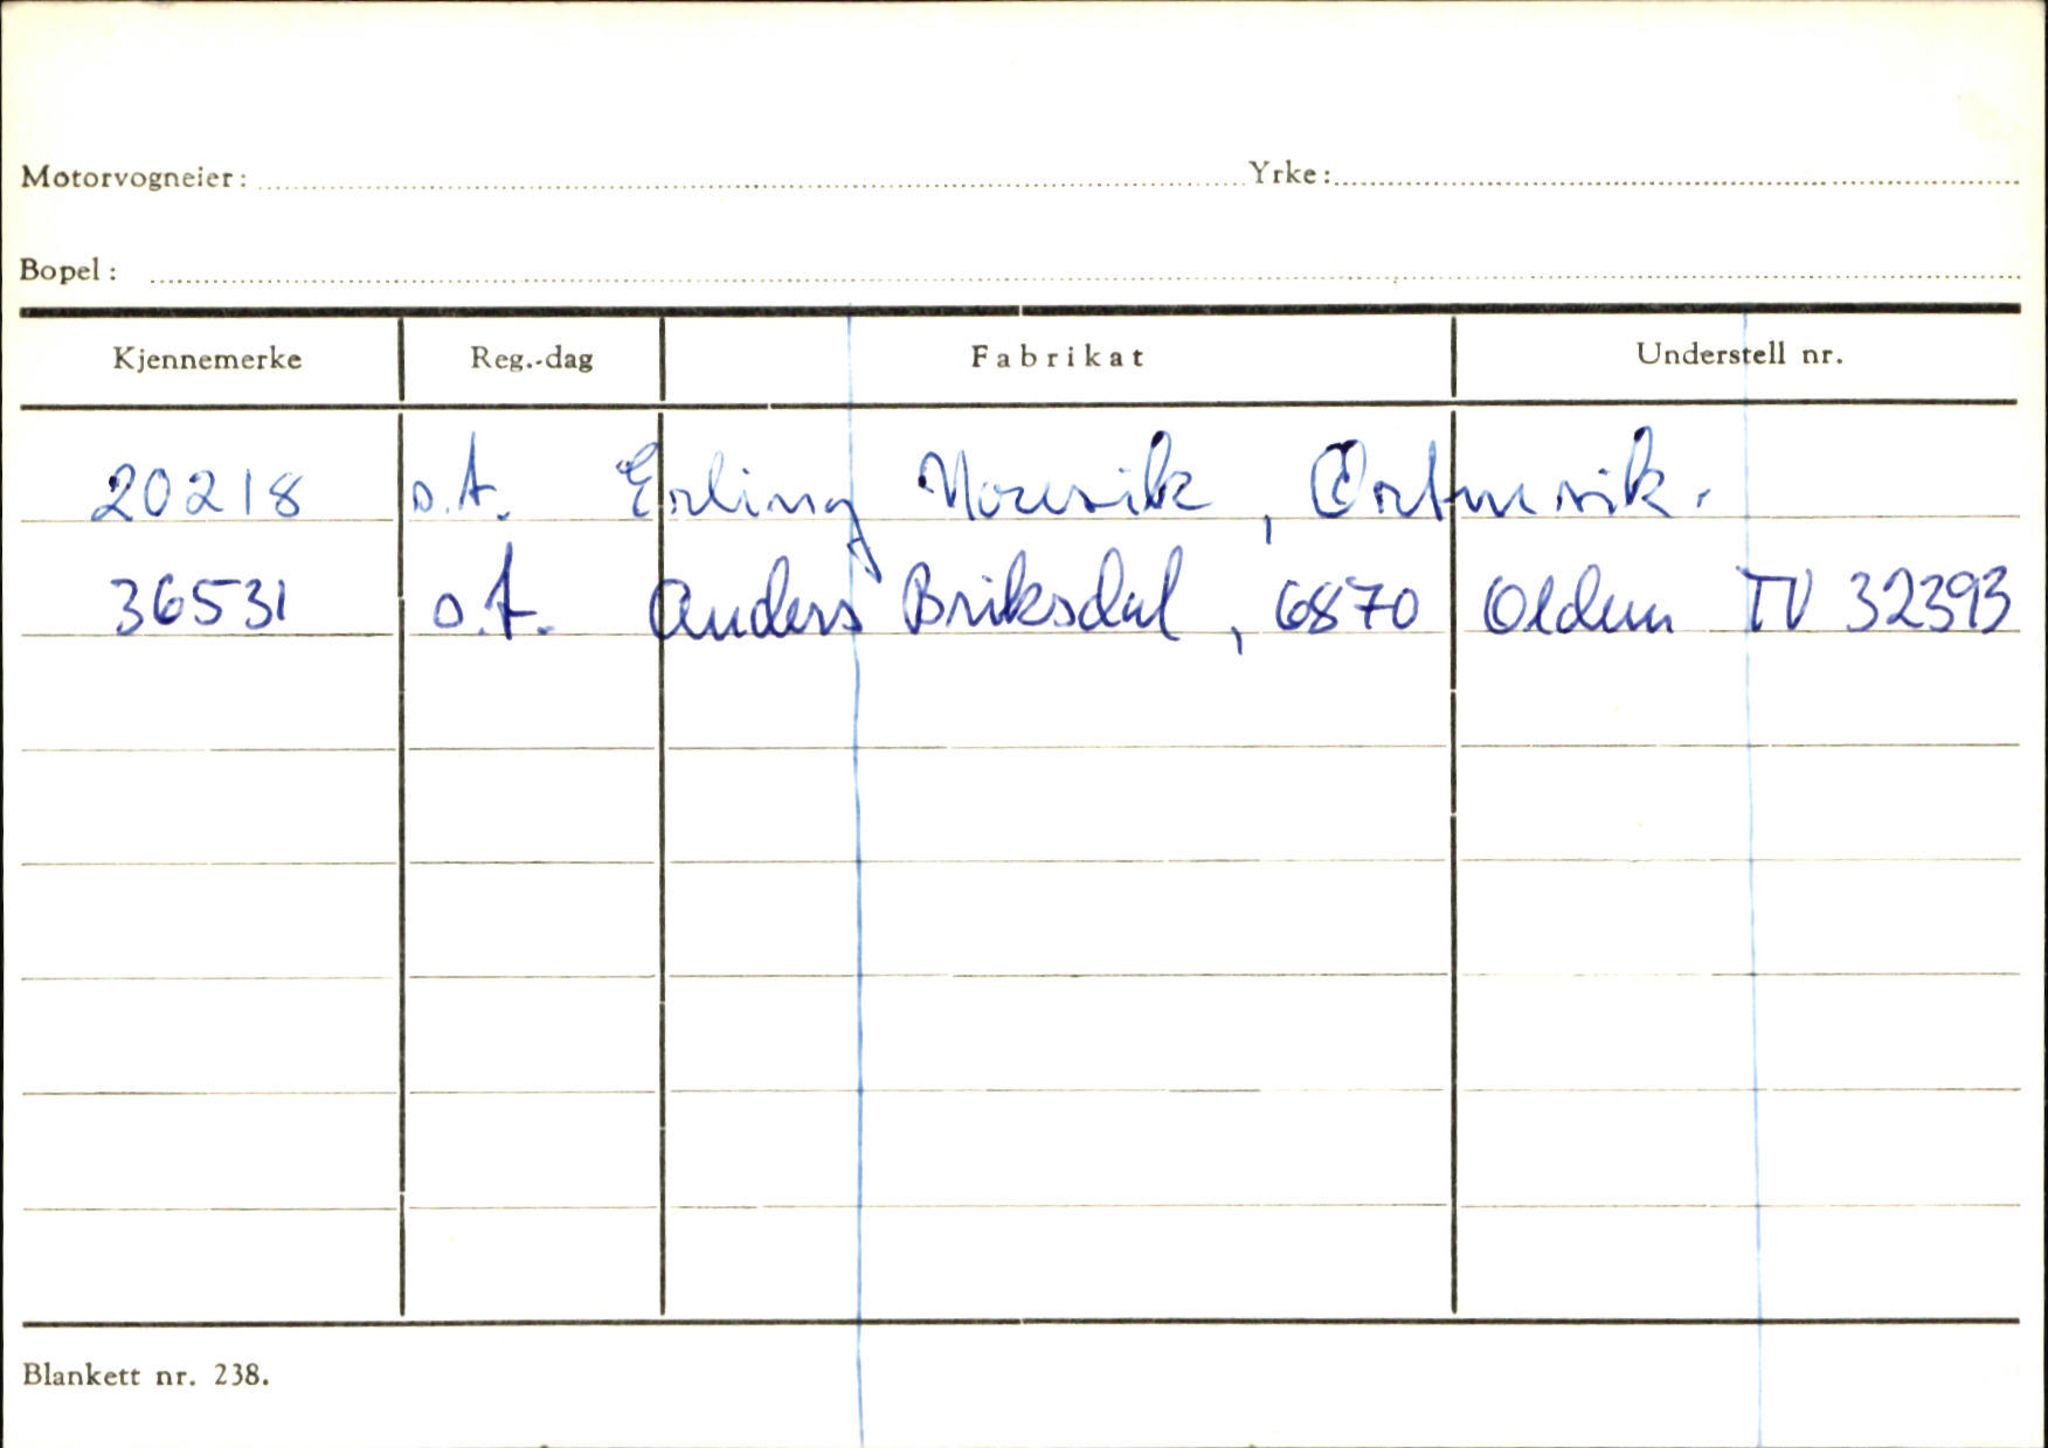 Motorvogneier: Yrke:
Bopel:
Kjennemerke Reg.-dag Fabrikat Understell nr.
20218 o.t. Erling Norevik, Ortnevik.
36531 o.t. Anders Briksdal, 6870 Olden TV 32393
Blankett nr. 238.